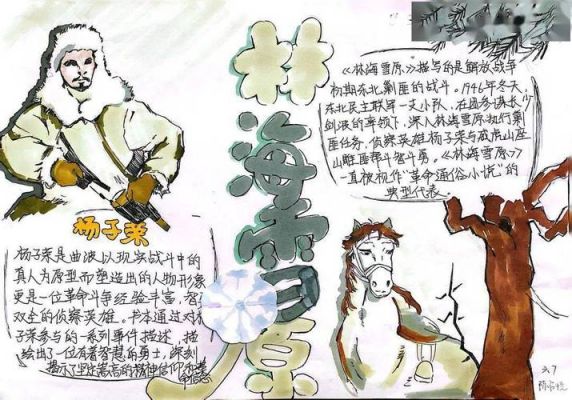 林海雪原
《林海雪原》描写的是解放战争
初期东北剿匪的战斗。1946年冬天,
东北民主联军一支小队，在团参谋长少
剑波的率领下，深入林海雪原执行剿
匪任务，侦察英雄杨子荣与威虎山座
山雕匪帮斗智斗勇。《林海雪原》
一直被视作"革命通俗小说"的
典型代表。
杨子荣
杨子荣是曲波以现实战斗中的
真人为原型而塑造出的人物形象
更是一位革命斗争经验丰富，智
双全的侦察英雄。书本通过对
子荣参与的一系列事件描述，描
绘出了一位有着智慧的勇士，深刻
揭示了坚定崇高的精神信仰和革
命信念
六7